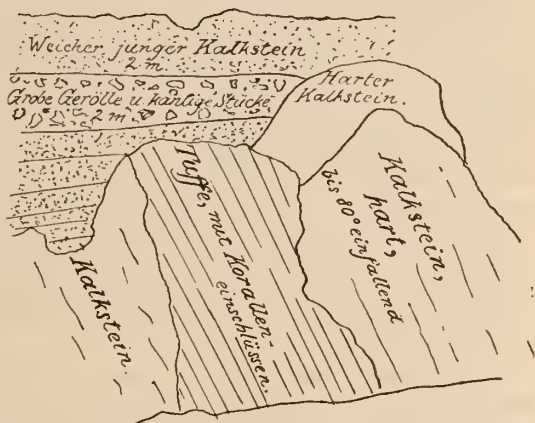 Weicher junger Kalkstein
2 m.
Grobe Gerölle u. kantige Stücke
2 m
Harter
Kalkstein.
Kalkstein.
Tuffe, mit Korallen-
einschlüssen.
Kalkstein,
hart,
bis 80° einfallend